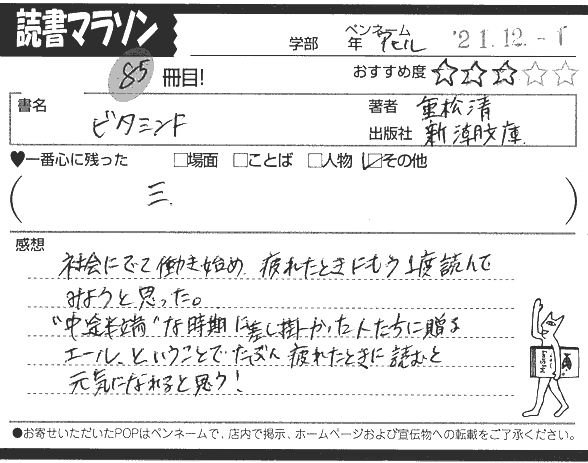 読書マラソン
学部 年 ペンネーム アセル '21.12.-1
85 冊目!
おすすめ度 ★★★☆☆
書名 ビタミンF
著者 重松清
出版社 新潮文庫
♥一番心に残った □場面 □ことば □人物 ☑その他
( 三. )
感想
社会にでて働き始め、疲れたときにもう1度読んで
みようと思った。
"中途半端"な時期に差し掛かった人たちに贈る
エール、ということでたぶん疲れたときに読むと
元気になれると思う!
●お寄せいただいたPOPはペンネームで、店内で掲示、ホームページおよび宣伝物への転載をご了承ください。